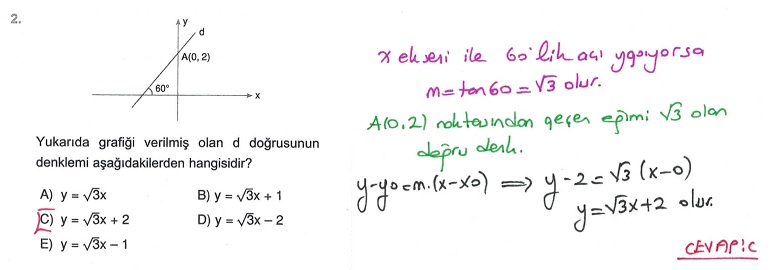 2.
y
d
A(0, 2)
60°
x
Yukarıda grafiği verilmiş olan d doğrusunun
denklemi aşağıdakilerden hangisidir?
A) y = √3x
B) y = √3x + 1
C) y = √3x + 2
D) y = √3x – 2
E) y = √3x – 1
x ekseni ile 60°lik açı yapıyorsa
m=tan60=√3 olur.
A(0,2) noktasından geçen eğimi √3 olan
doğru denk.
y-y0=m.(x-x0) ⟹ y-2=√3(x-0)
y=√3x+2 olur.
CEVAP:C